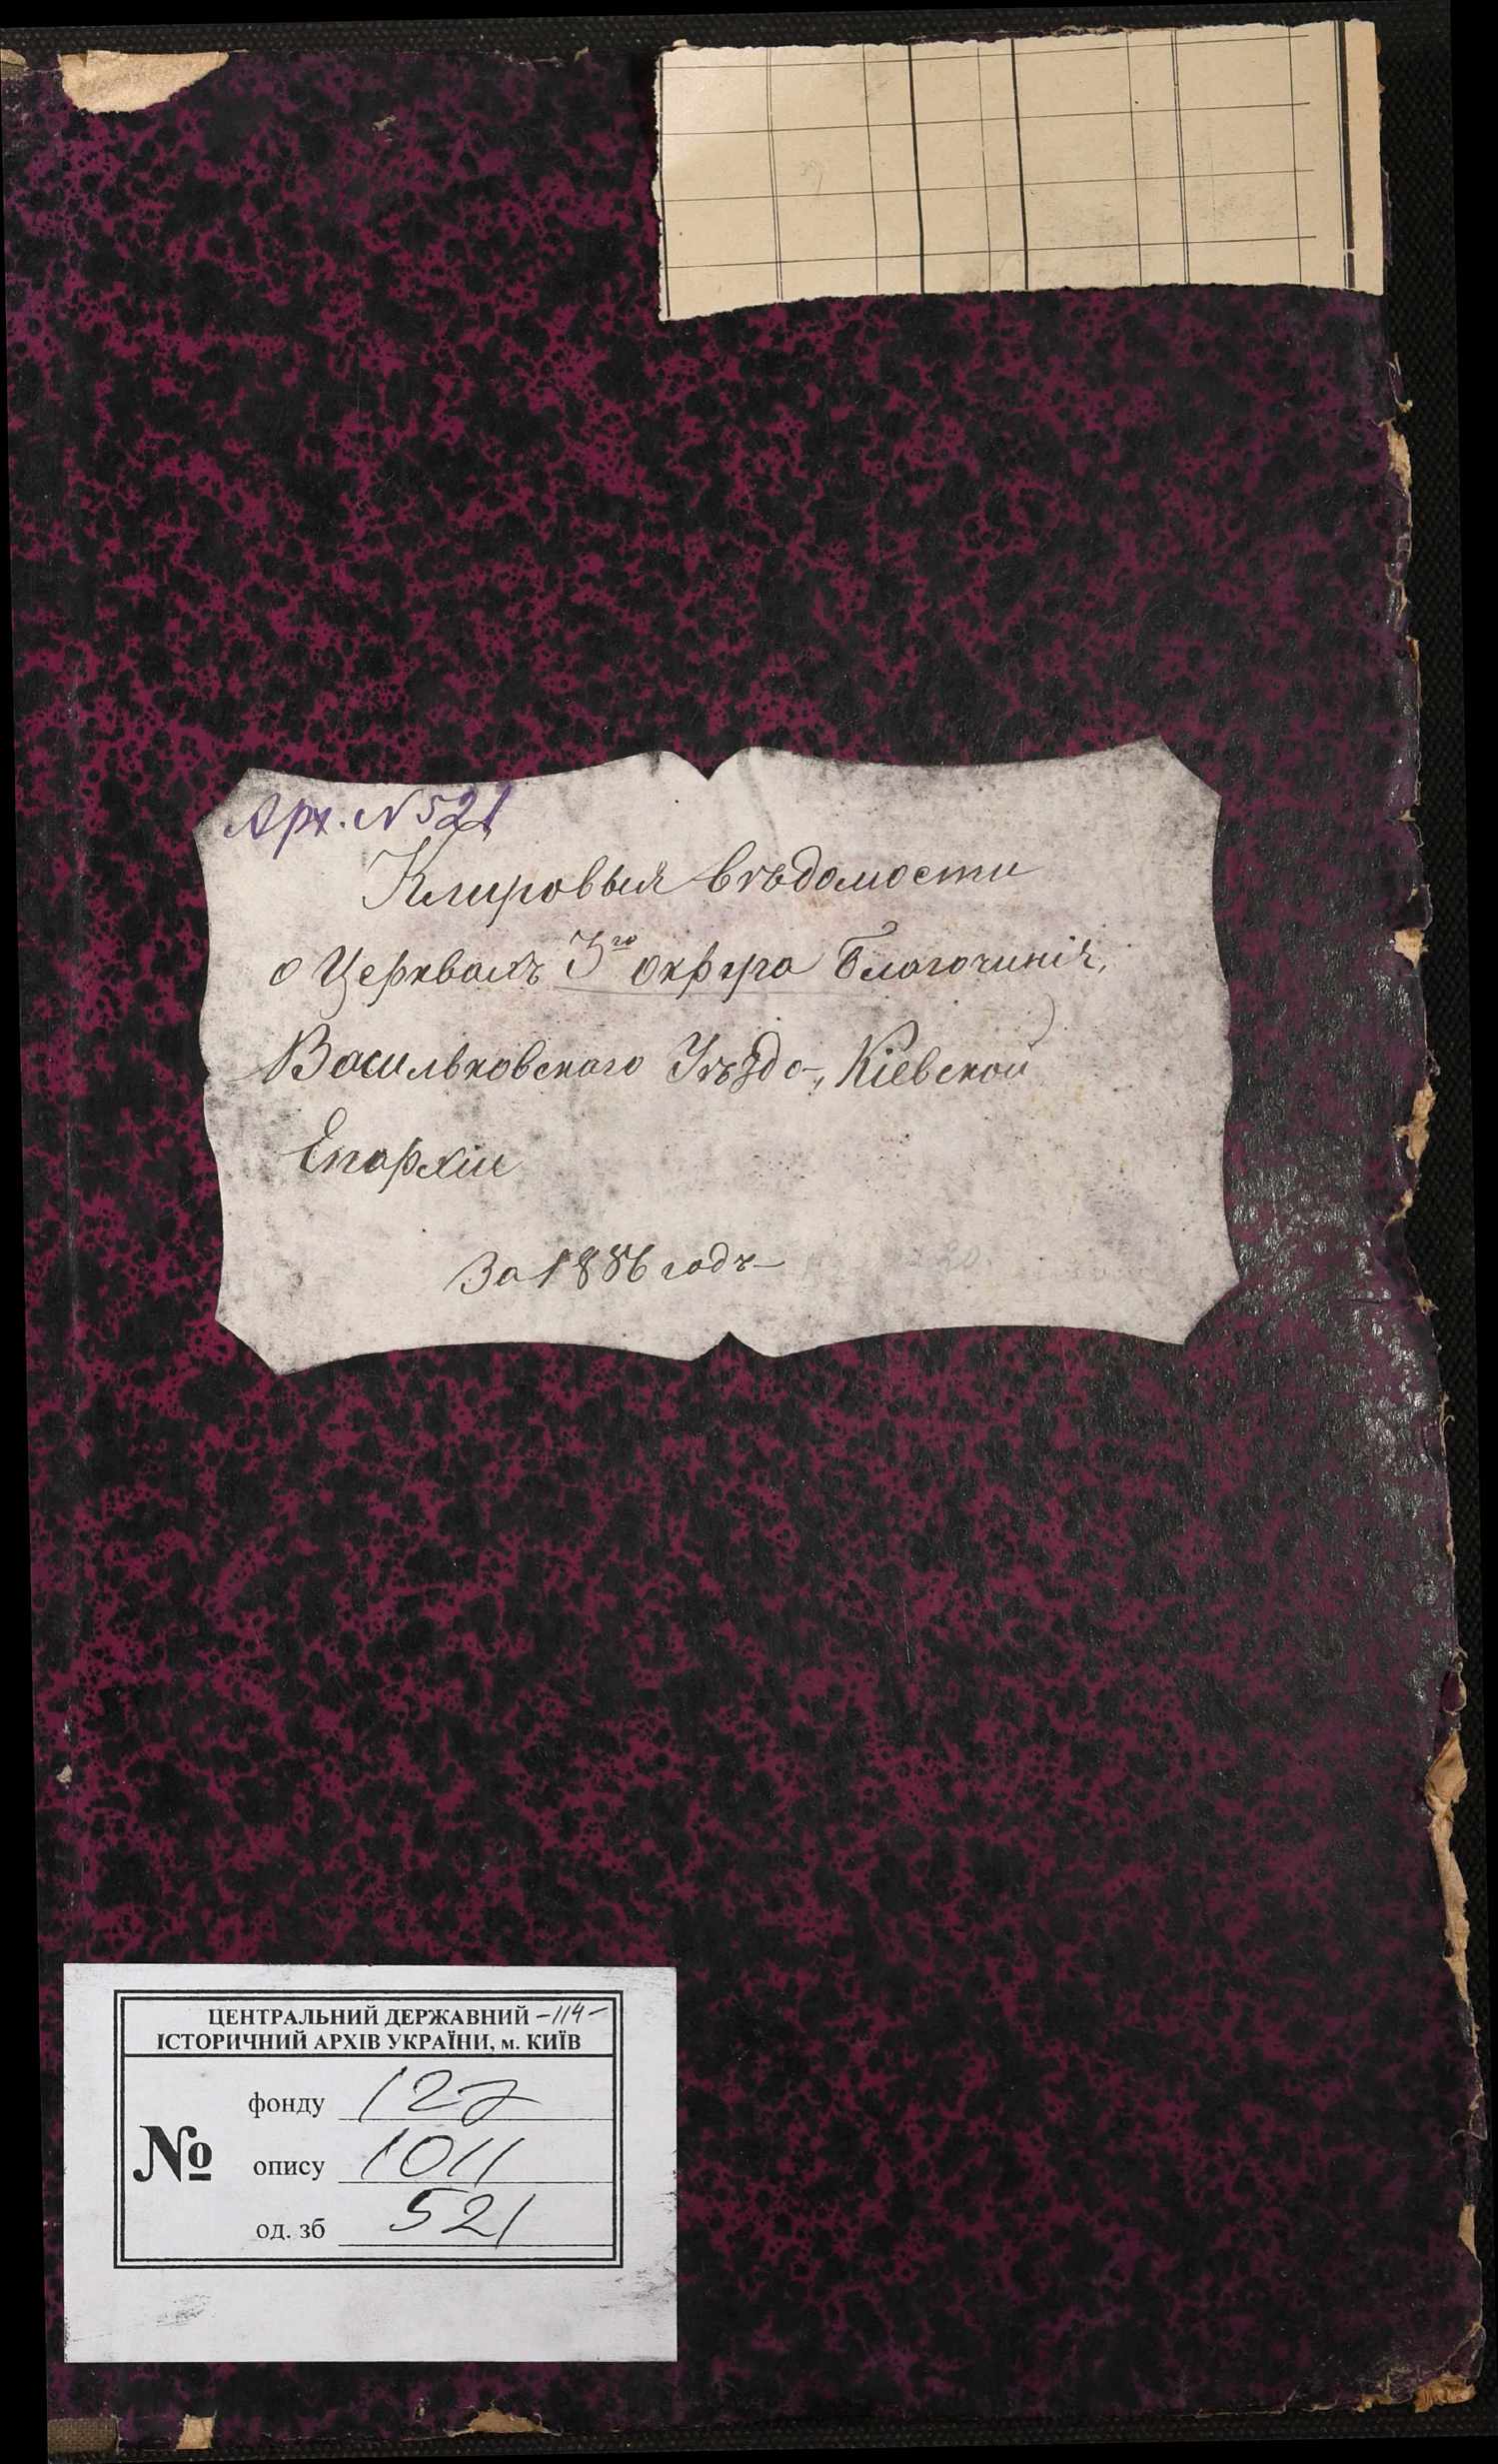 Арх. N 521
Клировыя вѣдомости
о Церквахъ 3го округа Благочинія,
Васильковскаго Уѣзда, Кіевской
Епархіи
За 1886 годъ
ЦЕНТРАЛЬНИЙ ДЕРЖАВНИЙ -114-
ІСТОРИЧНИЙ АРХІВ УКРАЇНИ, м. КИЇВ
№
фонду 127
опису 1011
од. зб 521